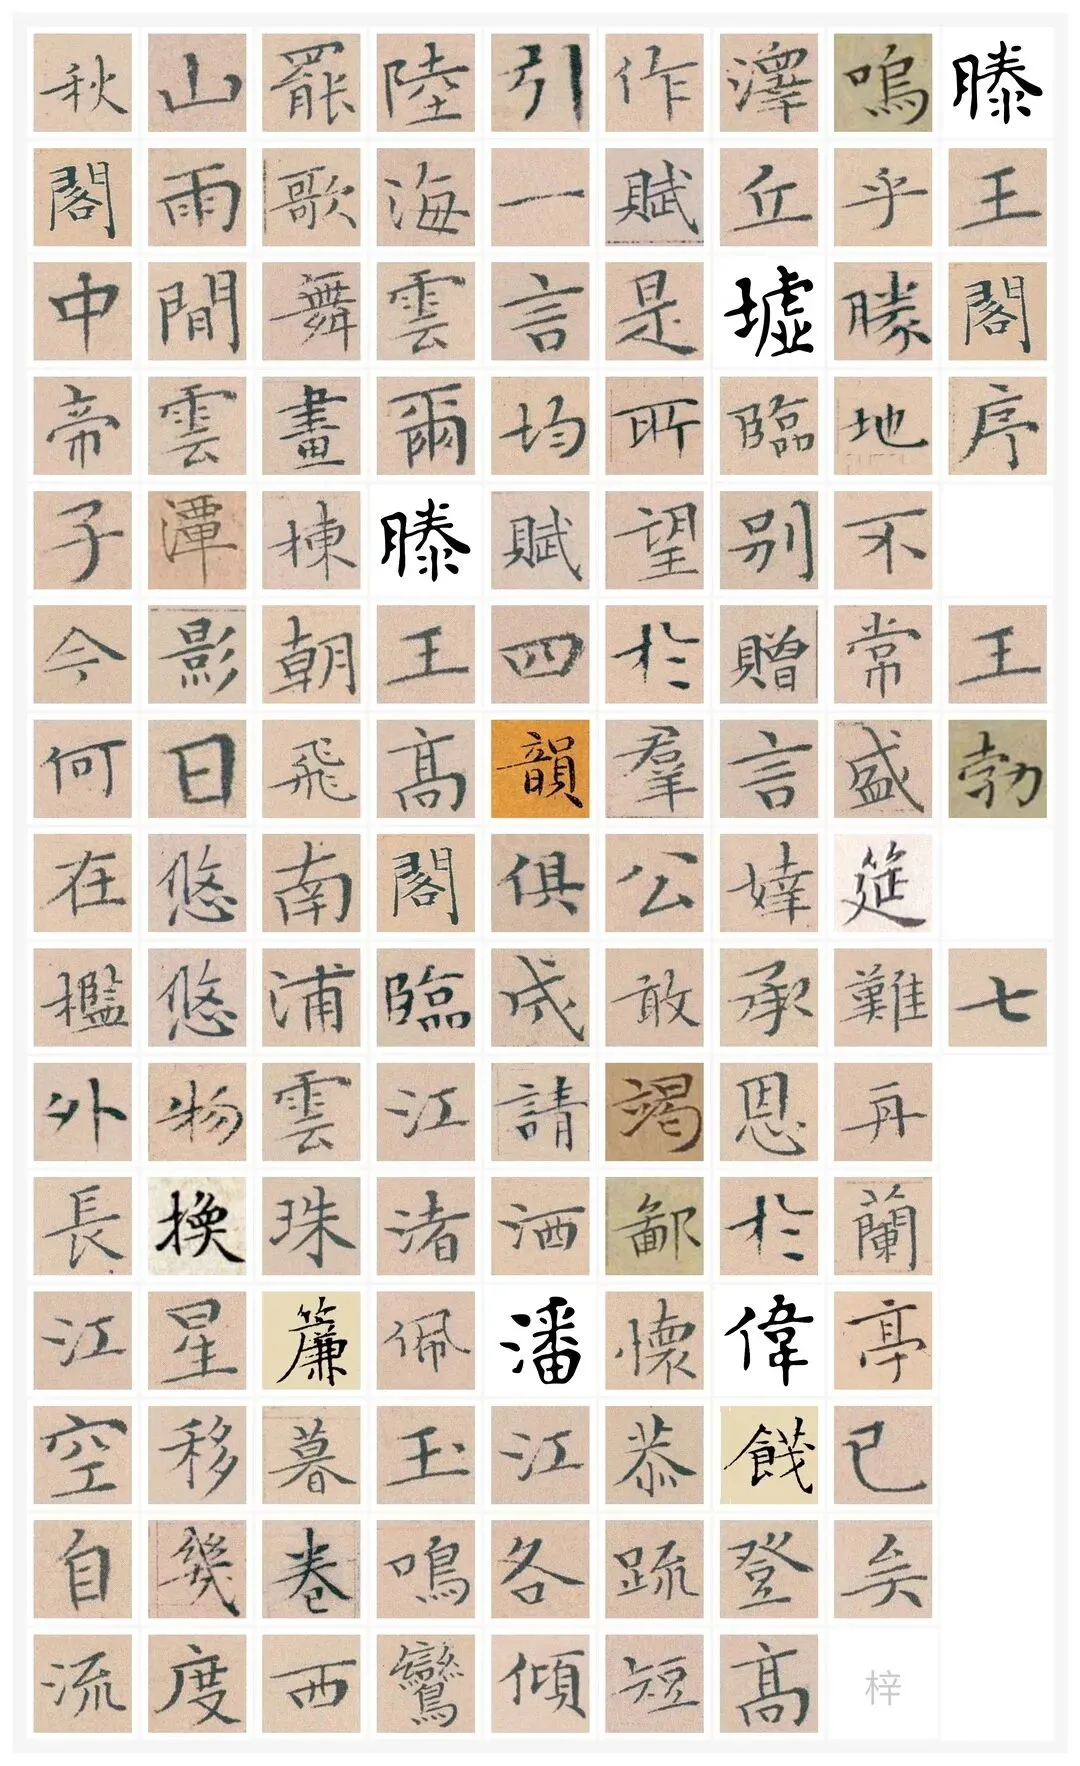 滕王閣序 王勃 七
嗚乎勝地不常盛筵難再蘭亭已矣梓
澤丘墟臨別贈言婞承恩於偉餞登高
作賦是所望於羣公敢竭鄙懷恭疏短
引一言均賦四韻俱成請洒潘江各傾
陸海雲爾滕王高閣臨江渚佩玉鳴鸞
罷歌舞畫棟朝飛南浦雲珠簾暮卷西
山雨閒雲潭影日悠悠物換星移幾度
秋閣中帝子今何在檻外長江空自流